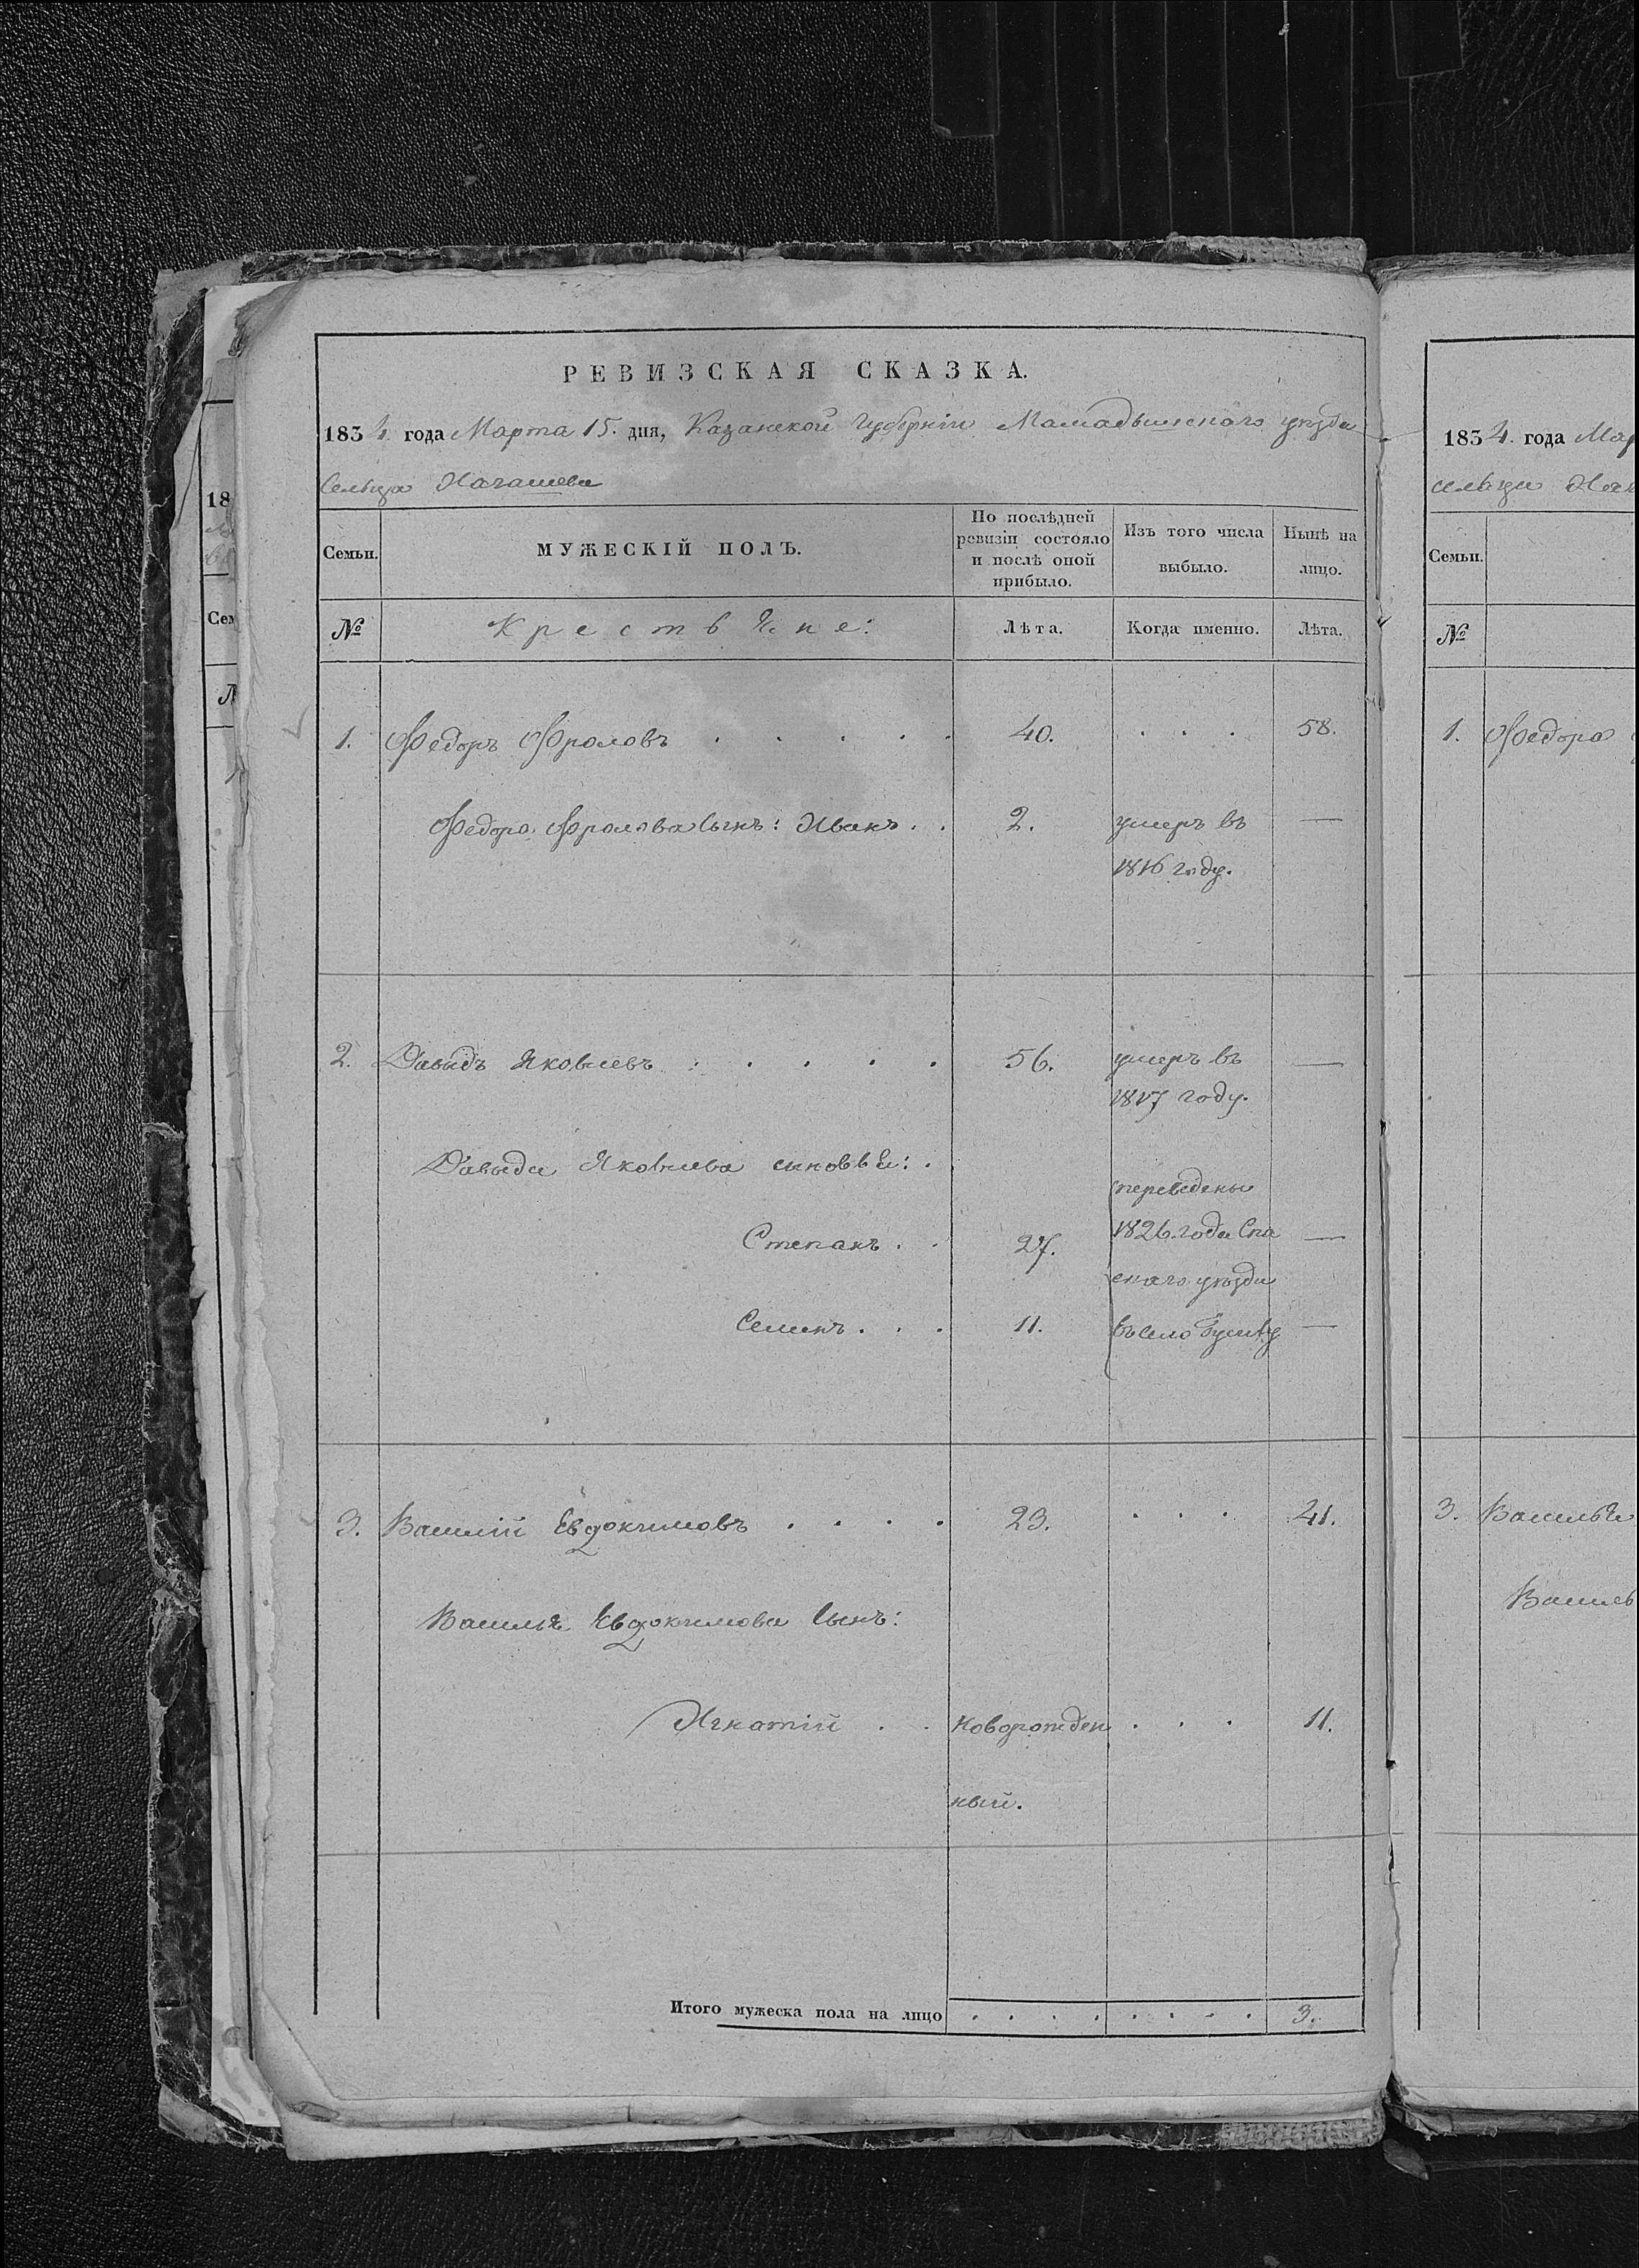 РЕВИЗСКАЯ СКАЗКА.
1834. года Марта 15. дня, Казанской Губерніи Мамадышскаго уѣзда
Сельца
Семьи. МУЖЕСКІЙ ПОЛЪ. По послѣдней ревизіи состояло и послѣ оной прибыло. Изъ того числа выбыло. Нынѣ на лицо.
№ Крестьяне: Лѣта. Когда именно. Лѣта.
1. Федоръ Фроловъ . . . . . 40. . . . 58.
Федора Фролова Сынъ: Иванъ . . 2. умеръ въ —
1816 году.
2. Давыдъ Яковлевъ . . . . . 56. умеръ въ —
1817 году.
Давыда Яковлева сыновья: .
переведены
Степанъ . . 27. 1826. года Спа —
скаго уѣзда
Семенъ . . . 11. въ село —
3. Василій Евдокимовъ . . . . 23. . . . 41.
Василья Евдокимова Сынъ:
Игнатій . . Новорожден . . . 11.
ный.
Итого мужеска пола на лицо . . . . . . . . 3.
1834. года Мар
сельца
Семьи.
№
1. Федора
3. Василья
Василь
18
Сем